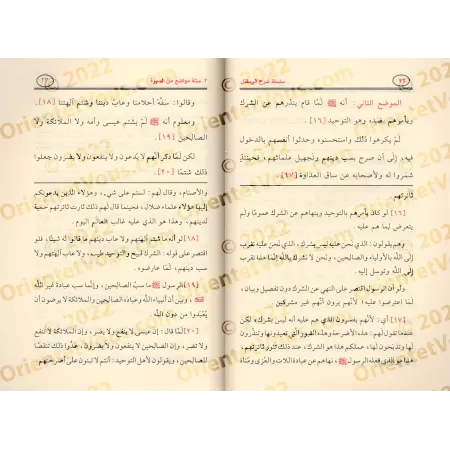 ٢٢
سلسلة شرح الرسائل
الموضع الثاني: أنه ﷺ لمّا قام ينذرهم عن الشرك
ويأمرهم بضده وهو التوحيد [١٦].
لم يكرهوا ذلك واستحسنوه وحدثوا أنفسهم بالدخول
فيه، إلى أن صرح بسب دينهم وتجهيل علمائهم، فحينئذٍ
شمروا له ولأصحابه عن ساق العداوة [١٧]
ثائرتهم.
[١٦] لو كان يأمرهم بالتوحيد وينهاهم عن الشرك عمومًا ولم
يتعرض لما هم عليه.
وهم يقولون: الذي نحن عليه ليس بشرك، الذي نحن عليه تقرب
إلى الله بالصالحين، ونحن لا نشرك بالله إنما هذا تقرب
إلى الله وتوسل إليه.
ولو أن الرسول اقتصر على النهي عن الشرك دون تفصيل وبيان،
لما اعترضوا عليه؛ لأنهم يرون أنهم غير مشركين
[١٧] أي: لأنهم يقرون الذي هم عليه أنه ليس بشرك، لكن
عندما تقول لهم: هذه الأضرحة وهذه القبور التي تعبدونها وتنذرون
لها وتذبحون لها، عملكم هذا هو الشرك، عند ذلك تثور ثائرتهم،
هذا هو الذي فعله الرسول ﷺ، نهاهم عن عبادة اللات والعزى ومناة
٢. ستة مواضع من السيرة
٢٣
وقالوا: سفّه أحلامنا وعاب ديننا وشتم آلهتنا [١٨].
ومعلوم أنه ﷺ لم يشتم عيسى وأمه ولا الملائكة ولا
الصالحين [١٩].
لكن لمّا ذكر أنهم لا يُدعون ولا ينفعون ولا يضرون جعلوا
ذلك شتمًا [٢٠].
والأصنام، وقال لهم: لستم على شيء، وهؤلاء الذين يدعونكم
إليها هؤلاء علماء ضلال، فلما قال لهم ذلك ثارت ثائرتهم حمية
لدينهم، وهذا هو الذي عليه غالب العالم اليوم.
[١٨] لو أنه ما شتم آلهتهم ولا عاب دينهم ما قالوا له شيئًا، فلو
اقتصر على قوله: الشرك قبيح والتوحيد طيب، ولا عاب آلهتهم ولا
سب دينهم، لما عارضوه.
[١٩] الرسول ﷺ ما سب الصالحين، وإنما سب عبادة غير الله
ﷻ، وبين أن أنبياء الله وعباده الصالحين والملائكة لا يرضون أن
يُعبدوا من دون الله.
[٢٠] لمَّا قال: إن عيسى لا ينفع ولا يضر، وإن الملائكة لا تنفع
ولا تضر، وإن الصالحين لا ينفعون ولا يضرون، عدوا ذلك تنقصًا
للصالحين، ويقولون لأهل التوحيد: أنتم لا تبنون على أضرحتهم